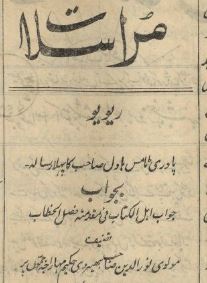 مراسلات
ریویو
پادری طامس ہاول صاحب کا پہلا رسالہ
بجواب
جواب اہل الکتاب فی مقدمتہ فصل الخطاب
تصنیف
مولوی نورالدین صاحب بھیروی حکیم مہاراجہ جموں پر